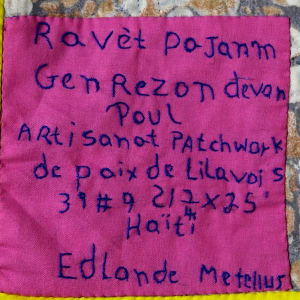 Ravèt pajanm
Gen Rezon devan
Poul
Artisanat Patchwork
de paix de Lilavois
39 # 9 21/2 x 25"
Haïti
Edlande Metellus